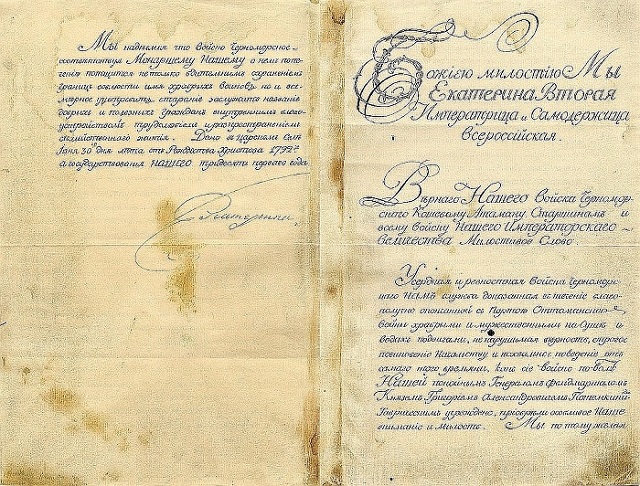 Мы надѣемся что Войско Черноморское
соответствуя Монаршему Нашему о немъ попе
чению потщится не токмо бдительнымъ охранениемъ
границъ соблюсти имя храбрыхъ воиновъ но и все
мѣрное употребить старание заслужить название
добрыхъ и полезныхъ гражданъ внутреннимъ благо
устройствомъ трудолюбиемъ и распространениемъ
семейственного жития. Дано в Царскомъ Селѣ
Июня 30го дня лѣта отъ Рождества Христова 1792го
а Государствования НАШЕГО тридесять перваго года
Екатерина
Божіею милостію Мы
Екатерина Вторая
Императрица и Самодержица
Всероссийская.
Вѣрнаго Нашего Войска Черномор-
скаго Кошевому Атаману Старшинамъ и
всему Войску Нашего Императорскаго
величества Милостивое Слово.
Усердная и ревностная Войска Черномор-
скаго НАМЪ служба доказанная въ течение благо-
получно оконченной съ Портою Оттоманскою
войны храбрыми и мужественными на Сушѣ и
водахъ подвигами, ненарушимая вѣрность, строгое
повиновение Начальству и похвальное поведение отъ
самаго того времени, какъ сие войско по волѣ
Нашей покойнымъ Генераломъ Фельдмаршаломъ
Княземъ Григориемъ Александровичемъ Потемкинымъ
Таврическимъ учреждено, приобрѣли особливое Наше
внимание и милость. Мы по тому желая